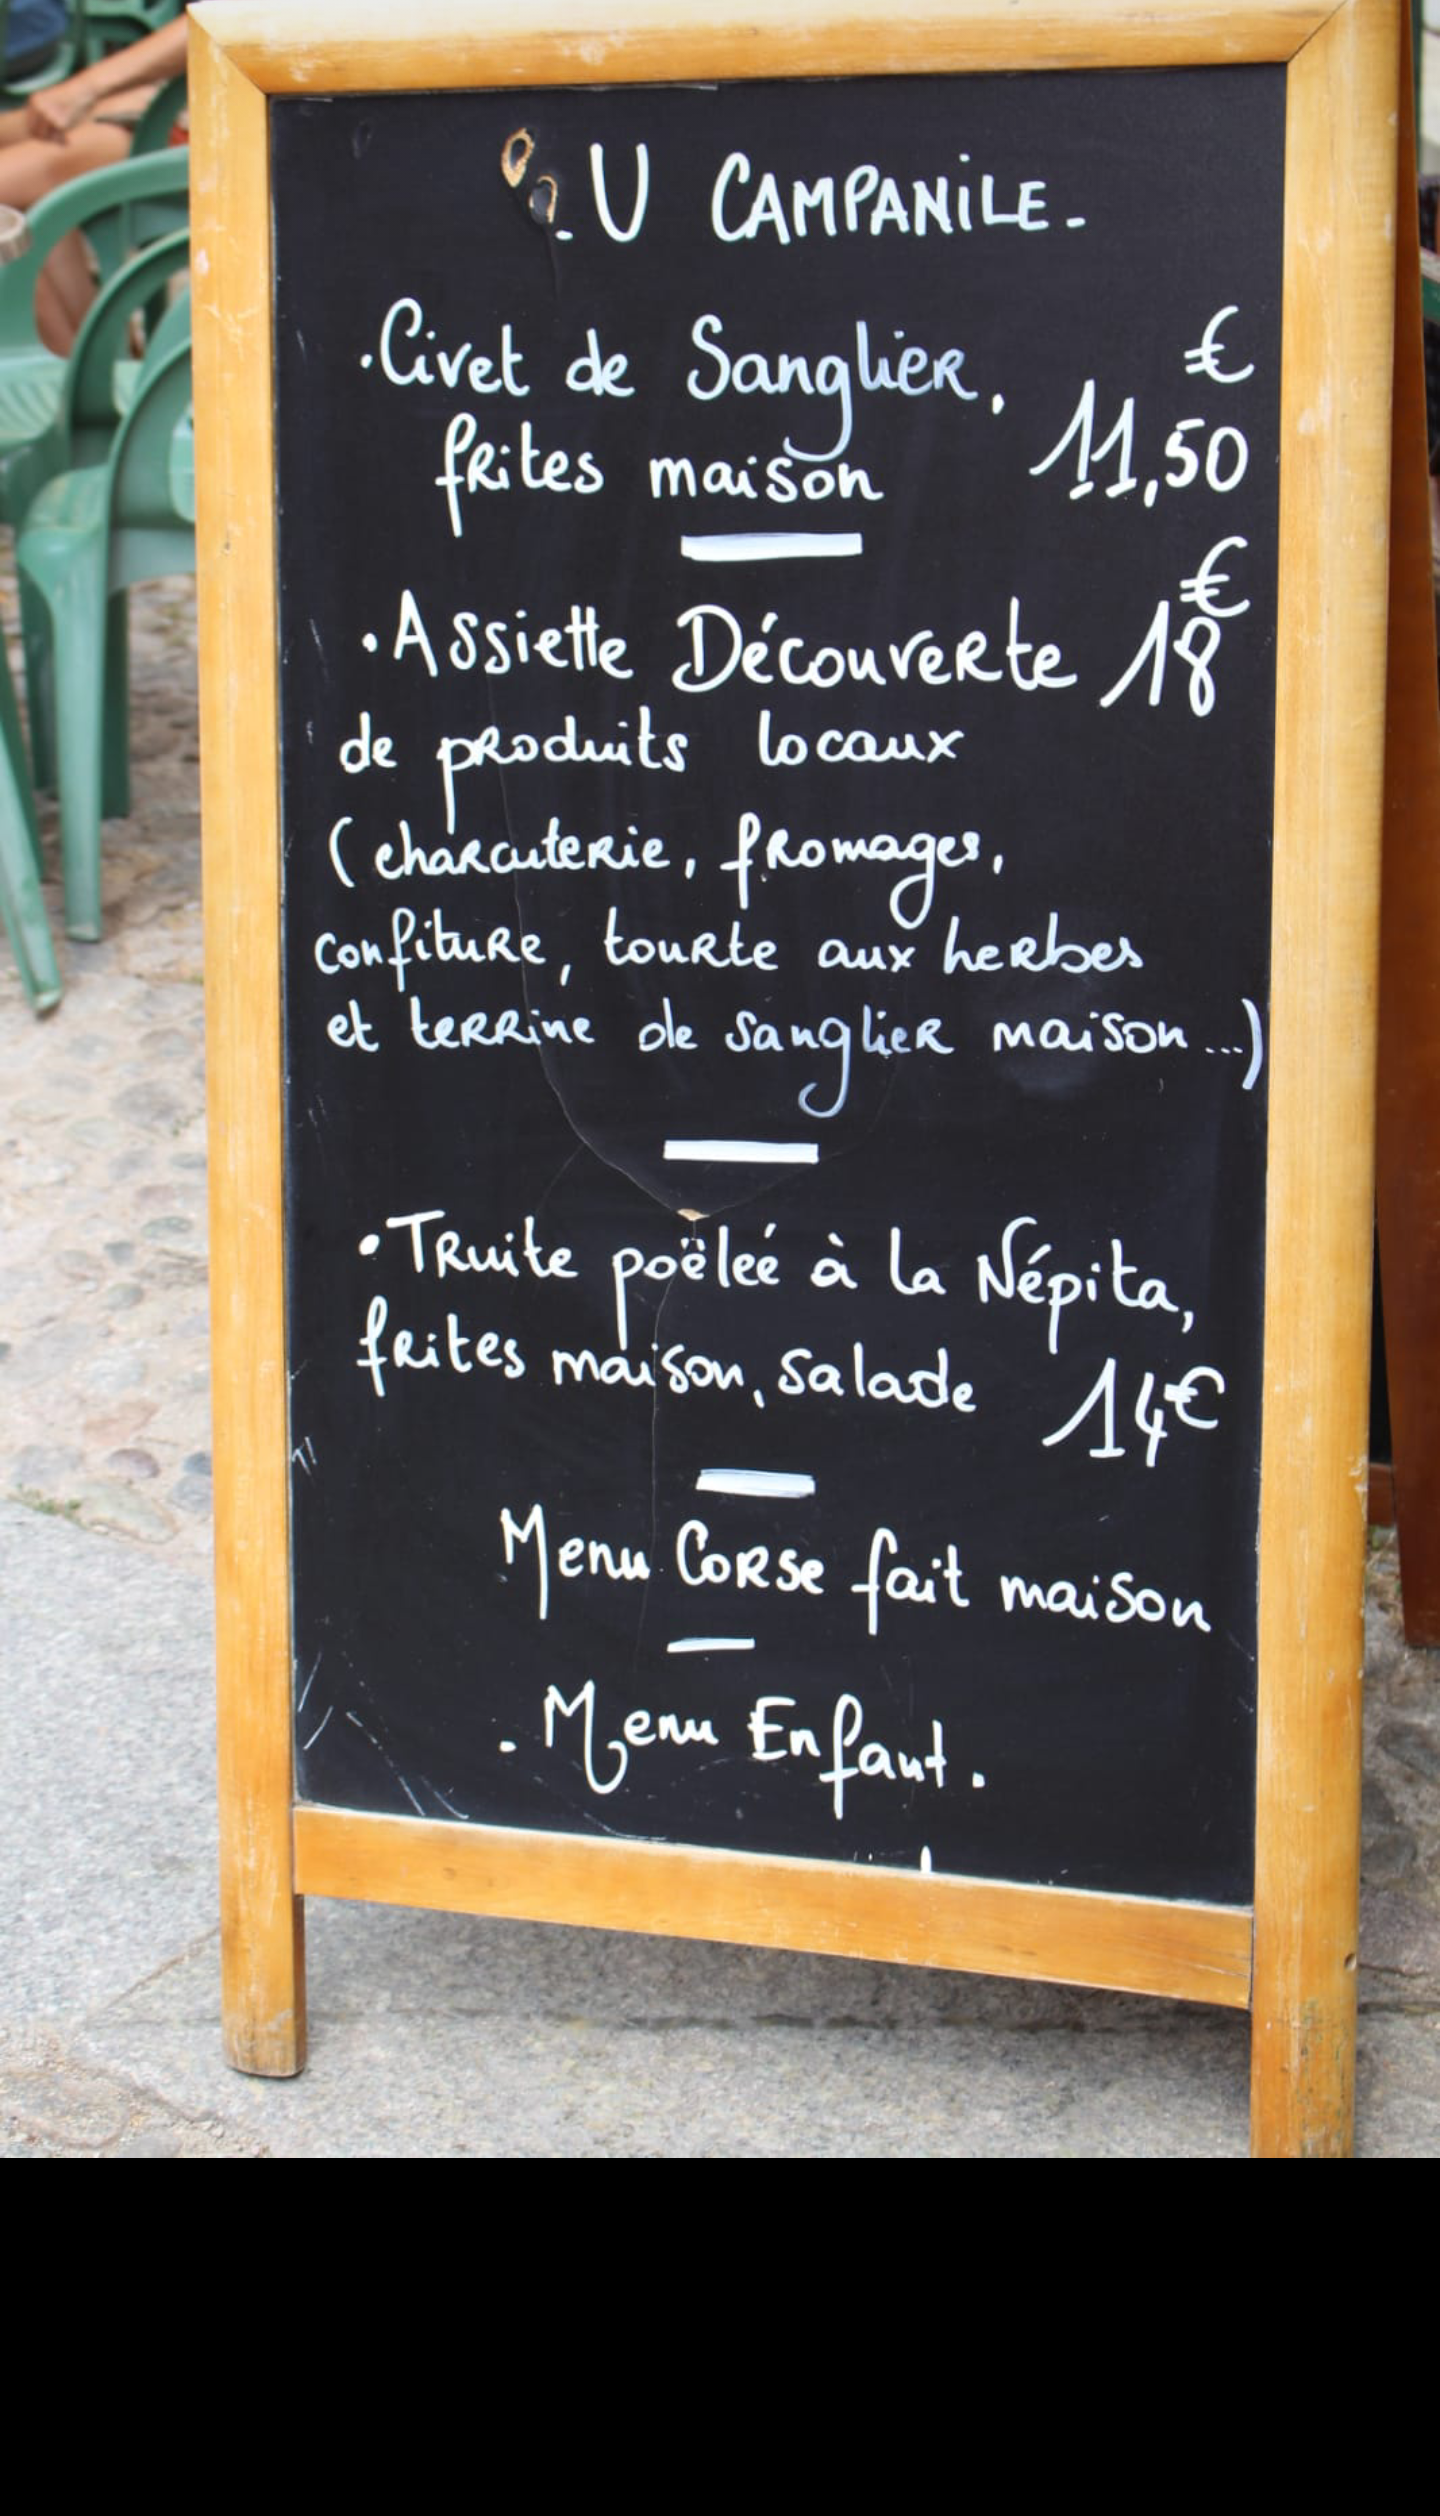 . U CAMPANILE -
. Civet de Sanglier, €
frites maison 11,50
€
. Assiette Découverte 18
de produits locaux
( charcuterie, fromages,
confiture, tourte aux herbes
et terrine de sanglier maison ...)
• Truite poëleé à la Népita,
frites maison, salade 14€
Menu Corse fait maison
. Menu Enfant .